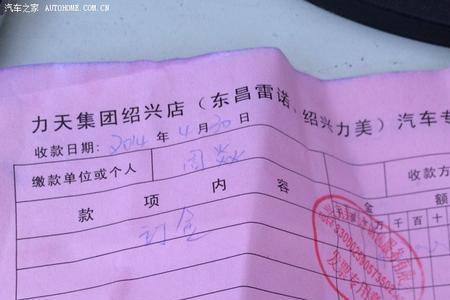 汽车之家 AUTOHOME.COM.CN
力天集团绍兴店（东昌雷诺、绍兴力美）汽车专
收款日期：2014 年 4 月 30 日
缴款单位或个人 周 收款方
款 项 内 容 金 额
千 百 十
订金